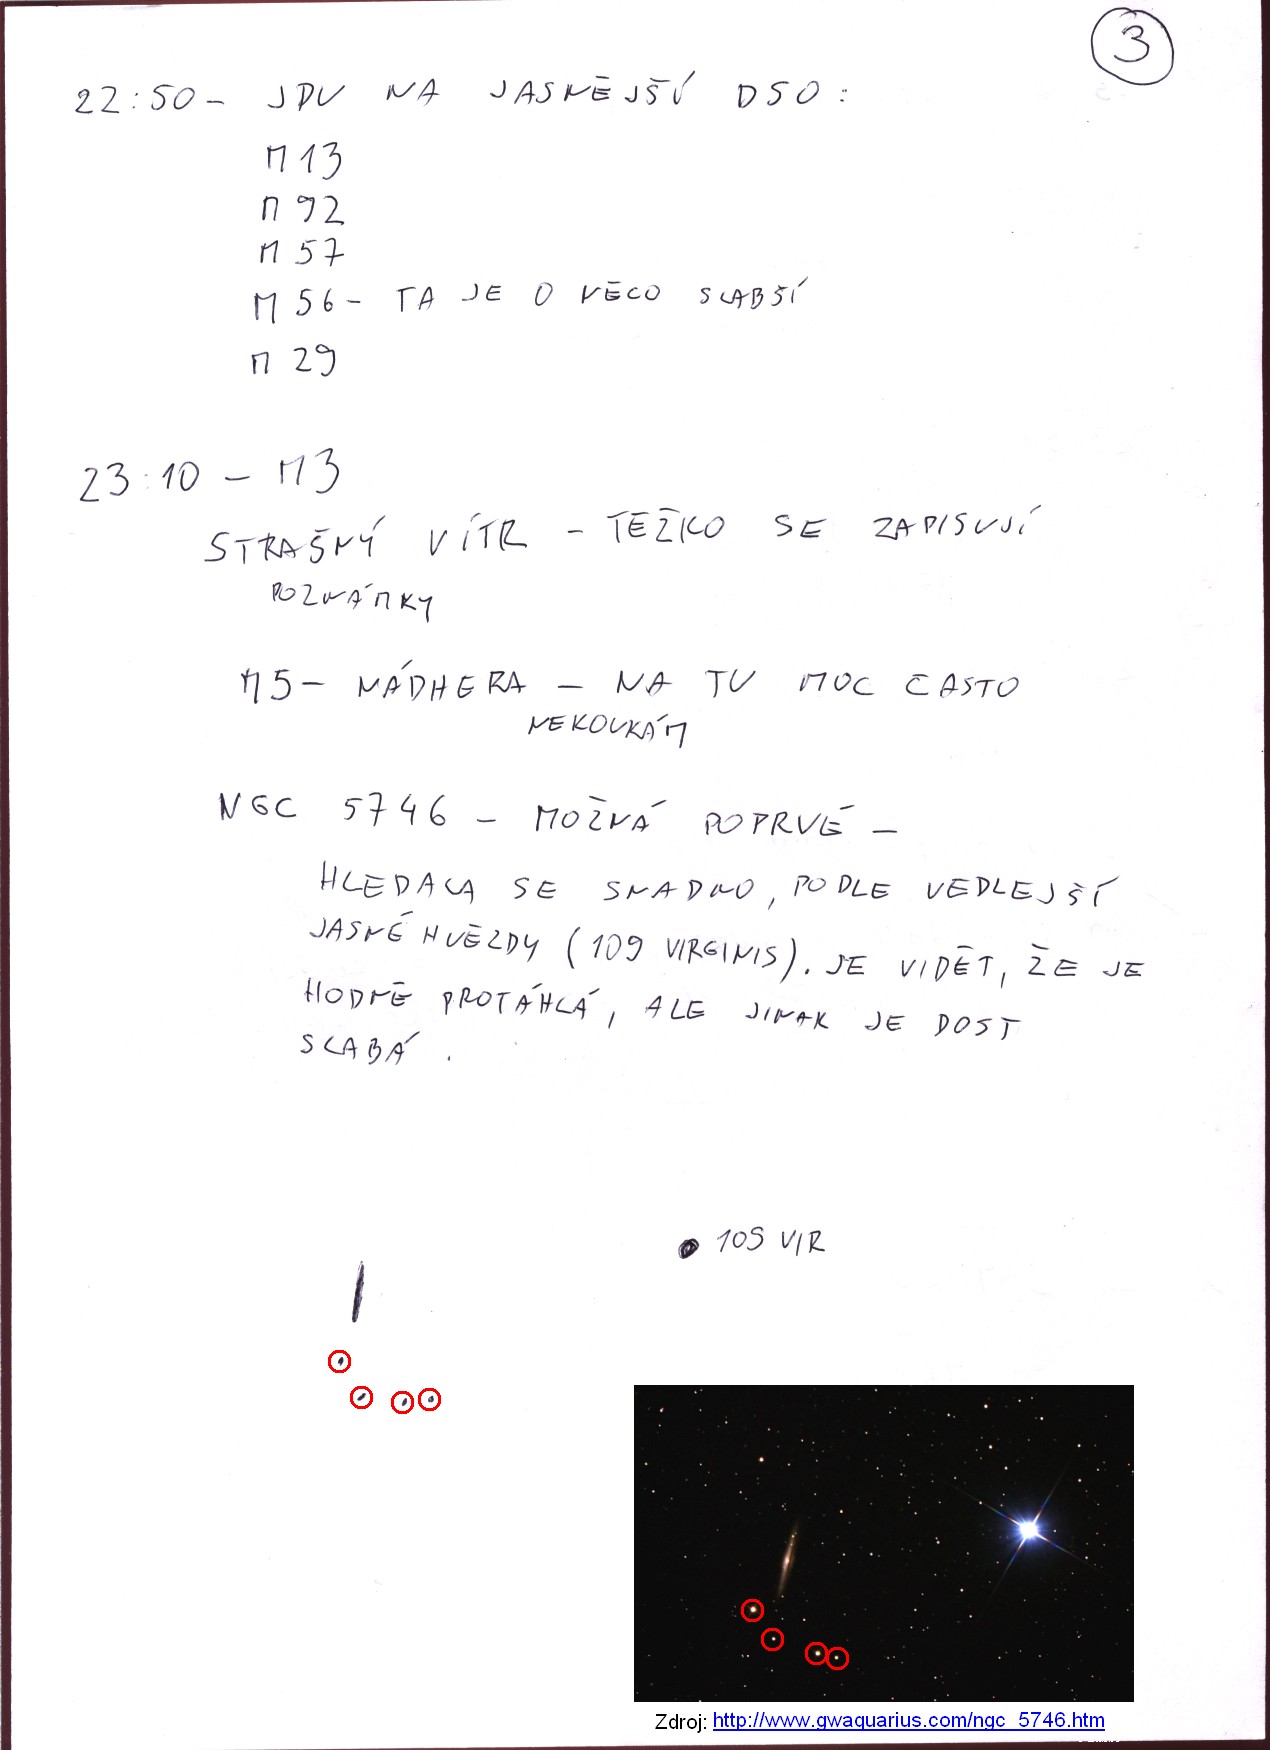 3
22:50 - JDU NA JASNĚJŠÍ DSO:
M 13
M 92
M 57
M 56 - TA JE O NĚCO SLABŠÍ
M 29
23:10 - M3
STRAŠNÝ VÍTR - TĚŽKO SE ZAPISUJÍ
POZNÁMKY
M5 - NÁDHERA - NA TU MOC ČASTO
NEKOUKÁM
NGC 5746 - MOŽNÁ POPRVÉ -
HLEDALA SE SNADNO, PODLE VEDLEJŠÍ
JASNÉ HVĚZDY (109 VIRGINIS). JE VIDĚT, ŽE JE
HODNĚ PROTÁHLÁ, ALE JINAK JE DOST
SLABÁ.
109 VIR
Zdroj: http://www.gwaquarius.com/ngc_5746.htm